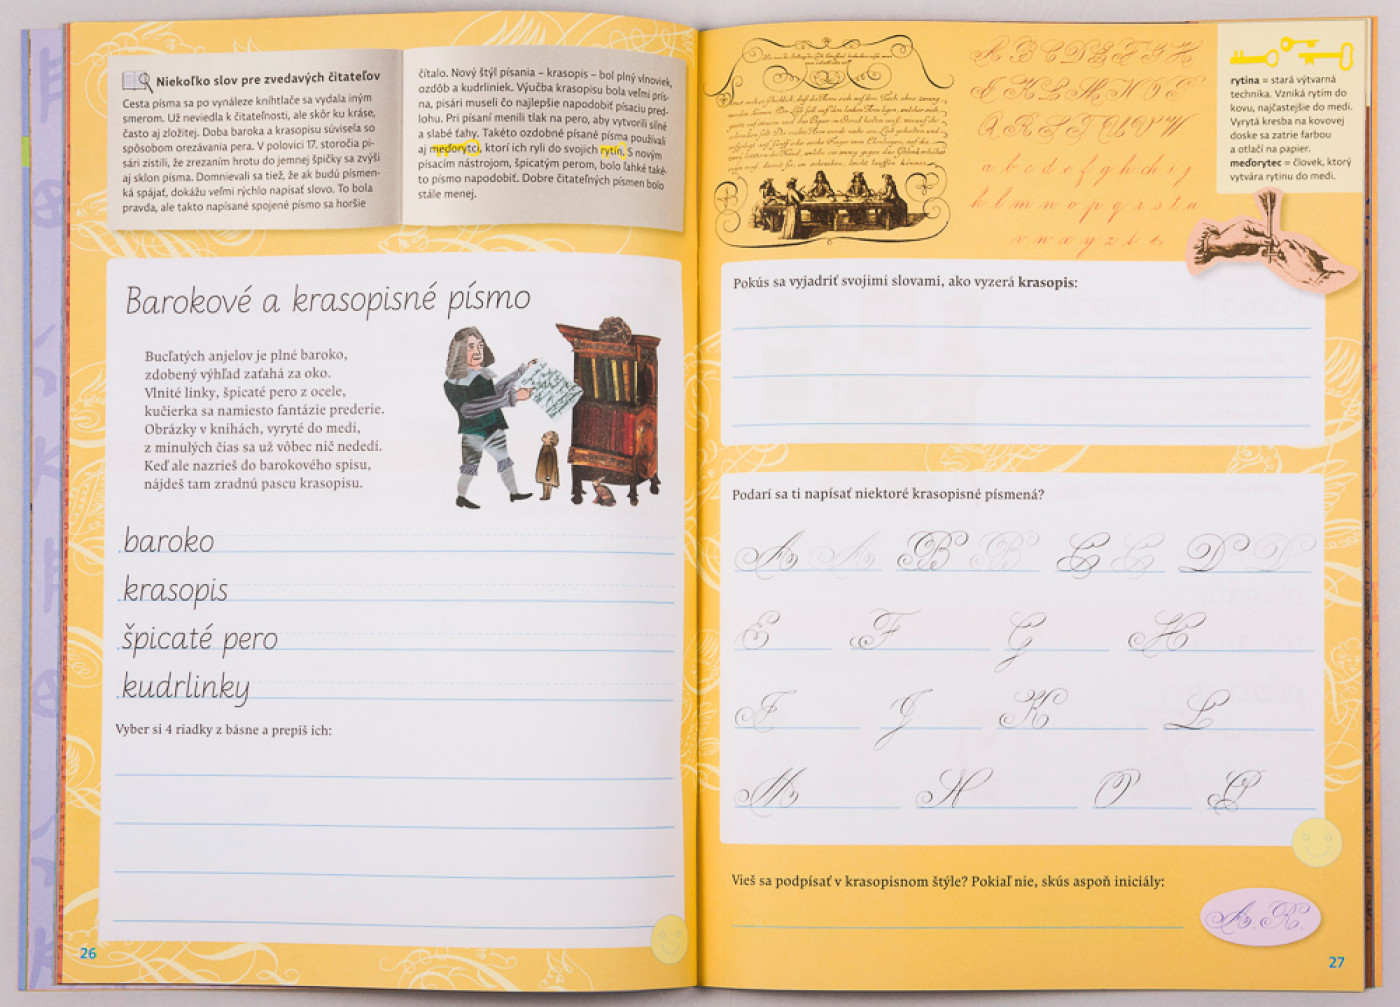 Niekoľko slov pre zvedavých čitateľov
Cesta písma sa po vynáleze kníhtlače sa vydala iným
smerom. Už neviedla k čitateľnosti, ale skôr ku kráse,
často aj zložitej. Doba baroka a krasopisu súvisela so
spôsobom orezávania pera. V polovici 17. storočia pi-
sári zistili, že zrezaním hrotu do jemnej špičky sa zvýši
aj sklon písma. Domnievali sa tiež, že ak budú písmen-
ká spájať, dokážu veľmi rýchlo napísať slovo. To bola
pravda, ale takto napísané spojené písmo sa horšie
čítalo. Nový štýl písania – krasopis – bol plný vlnoviek,
ozdôb a kudrliniek. Výučba krasopisu bola veľmi prís-
na, pisári museli čo najlepšie napodobiť písaciu pred-
lohu. Pri písaní menili tlak na pero, aby vytvorili silné
a slabé ťahy. Takéto ozdobné písané písma používali
aj medorytci, ktorí ich ryli do svojich rytín. S novým
písacím nástrojom, špicatým perom, bolo ľahké také-
to písmo napodobiť. Dobre čitateľných písmen bolo
stále menej.
Barokové a krasopisné písmo
Bucľatých anjelov je plné baroko,
zdobený výhľad zaťahá za oko.
Vlnité linky, špicaté pero z ocele,
kučierka sa namiesto fantázie prederie.
Obrázky v knihách, vyryté do medi,
z minulých čias sa už vôbec nič nededí.
Keď ale nazrieš do barokového spisu,
nájdeš tam zradnú pascu krasopisu.
baroko
krasopis
špicaté pero
kudrlinky
Vyber si 4 riadky z básne a prepíš ich:
26
A B C D E F G H
I K L M N O E
Q R L T U V W
a b c d e f g h i j
k l m n o p q r s t u
v w x y z
rytina = stará výtvarná
technika. Vzniká rytím do
kovu, najčastejšie do medi.
Vyrytá kresba na kovovej
doske sa zatrie farbou
a otlačí na papier.
medorytec = človek, ktorý
vytvára rytinu do medi.
Pokús sa vyjadriť svojimi slovami, ako vyzerá krasopis:
Podarí sa ti napísať niektoré krasopisné písmená?
A A B B C C D D
E F G H
I J K L
M N O P
Vieš sa podpísať v krasopisnom štýle? Pokiaľ nie, skús aspoň iniciály:
A. R.
27